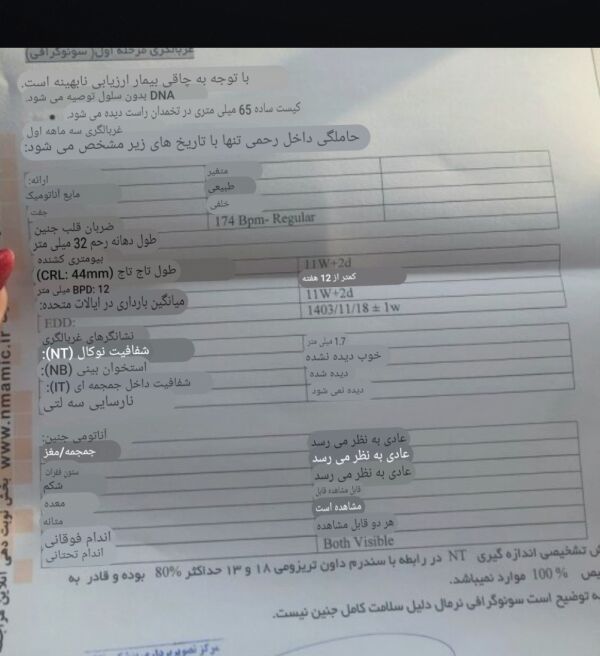 غربالگری مرحله اول( سونوگرافی)
با توجه به چاقی بیمار ارزیابی نابهینه است.
DNA بدون سلول توصیه می شود.
کیست ساده 65 میلی متری در تخمدان راست دیده می شود.
غربالگری سه ماهه اول
حاملگی داخل رحمی تنها با تاریخ های زیر مشخص می شود:
ارائه: متغیر
مایع آناتومیک طبیعی
جفت خلفی
ضربان قلب جنین 174 Bpm- Regular
طول دهانه رحم 32 میلی متر
بیومتری کشنده
طول تاج تاج (CRL: 44mm) 11W+2d
BPD: 12 میلی متر کمتر از 12 هفته
میانگین بارداری در ایالات متحده: 11W+2d
EDD: 1403/11/18 ± 1w
نشانگرهای غربالگری
شفافیت نوکال (NT): 1.7 میلی متر
استخوان بینی (NB): خوب دیده نشده
شفافیت داخل جمجمه ای (IT): دیده شده
نارسایی سه لتی دیده نمی شود
آناتومی جنین:
جمجمه/مغز عادی به نظر می رسد
ستون فقرات عادی به نظر می رسد
شکم عادی به نظر می رسد
معده قابل مشاهده قابل
مثانه مشاهده است
اندام فوقانی هر دو قابل مشاهده
اندام تحتانی Both Visible
تشخیصی اندازه گیری NT در رابطه با سندرم داون تریزومی ۱۸ و ۱۳ حداکثر 80% بوده و قادر به
100% موارد نمیباشد.
توضیح است سونوگرافی نرمال دلیل سلامت کامل جنین نیست.
مرکز تصویربرداری
www.nmamic.ir
نوبت دهی آنلاین